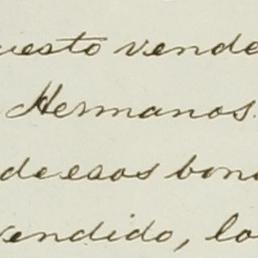 uesto vende
Hermanos.
de esos bono
vendido, lo